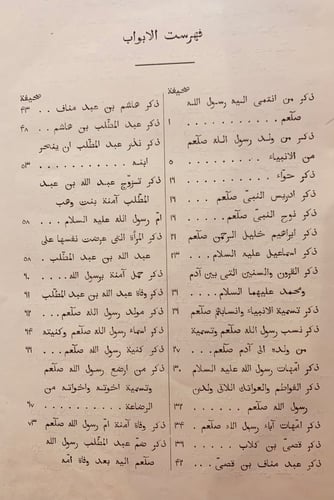 فهرست الابواب
صحيفة
ذكر من انتمى اليه رسول الله
صلعم . . . . . . . ١
ذكر من ولد رسول الله صلعم
من الانبياء . . . . . ٥
ذكر حوّاء . . . . . . ١٩
ذكر ادريس النبىّ صلعم . . . ١٩
ذكر نوح النبىّ صلعم . . . . ١٩
ذكر ابراهيم خليل الرحمن صلعم ٢١
ذكر اسماعيل عليه السلام . . . ٢٣
ذكر القرون والسنين التى بين آدم
ومحمد عليهما السلام . . . . ٢٦
ذكر تسمية الانبياء وانسابهم صلعم ٢٦
ذكر نسب رسول الله صلعم وتسمية
من ولده الى آدم صلعم . . . ٢٧
ذكر امّهات رسول الله عليه السلام ٣٠
ذكر الفواطم والعواتك اللاتى ولدن
رسول الله . . . . . . ٣٢
ذكر امّهات آباء رسول الله صلعم . ٣٤
ذكر قصىّ بن كلاب . . . . ٣٦
ذكر عبد مناف بن قصىّ . . . ٤٢
صحيفة
ذكر هاشم بن عبد مناف . . ٤٣
ذكر عبد المطّلب بن هاشم . . . ٤٨
ذكر نذر عبد المطّلب ان ينحر
ابنه . . . . . . . ٥٣
ذكر تزوّج عبد الله بن عبد
المطّلب آمنة بنت وهب
امّ رسول الله عليه السلام . . . ٥٨
ذكر المرأة التى عرضت نفسها على
عبد الله بن عبد المطّلب . . ٥٨
ذكر حمل آمنة برسول الله . . ٦٠
ذكر وفاة عبد الله بن عبد المطّلب ٦١
ذكر مولد رسول الله صلعم . . ٦٢
ذكر اسماء رسول الله صلعم وكنيته ٦٤
ذكر كنية رسول الله صلعم . . ٦٦
ذكر من ارضع رسول الله صلعم
وتسمية اخوته واخواته من
الرضاعة . . . . . . ٦٧
ذكر وفاة آمنة امّ رسول الله صلعم ٧٣
ذكر ضمّ عبد المطّلب رسول الله
صلعم اليه بعد وفاة امّه